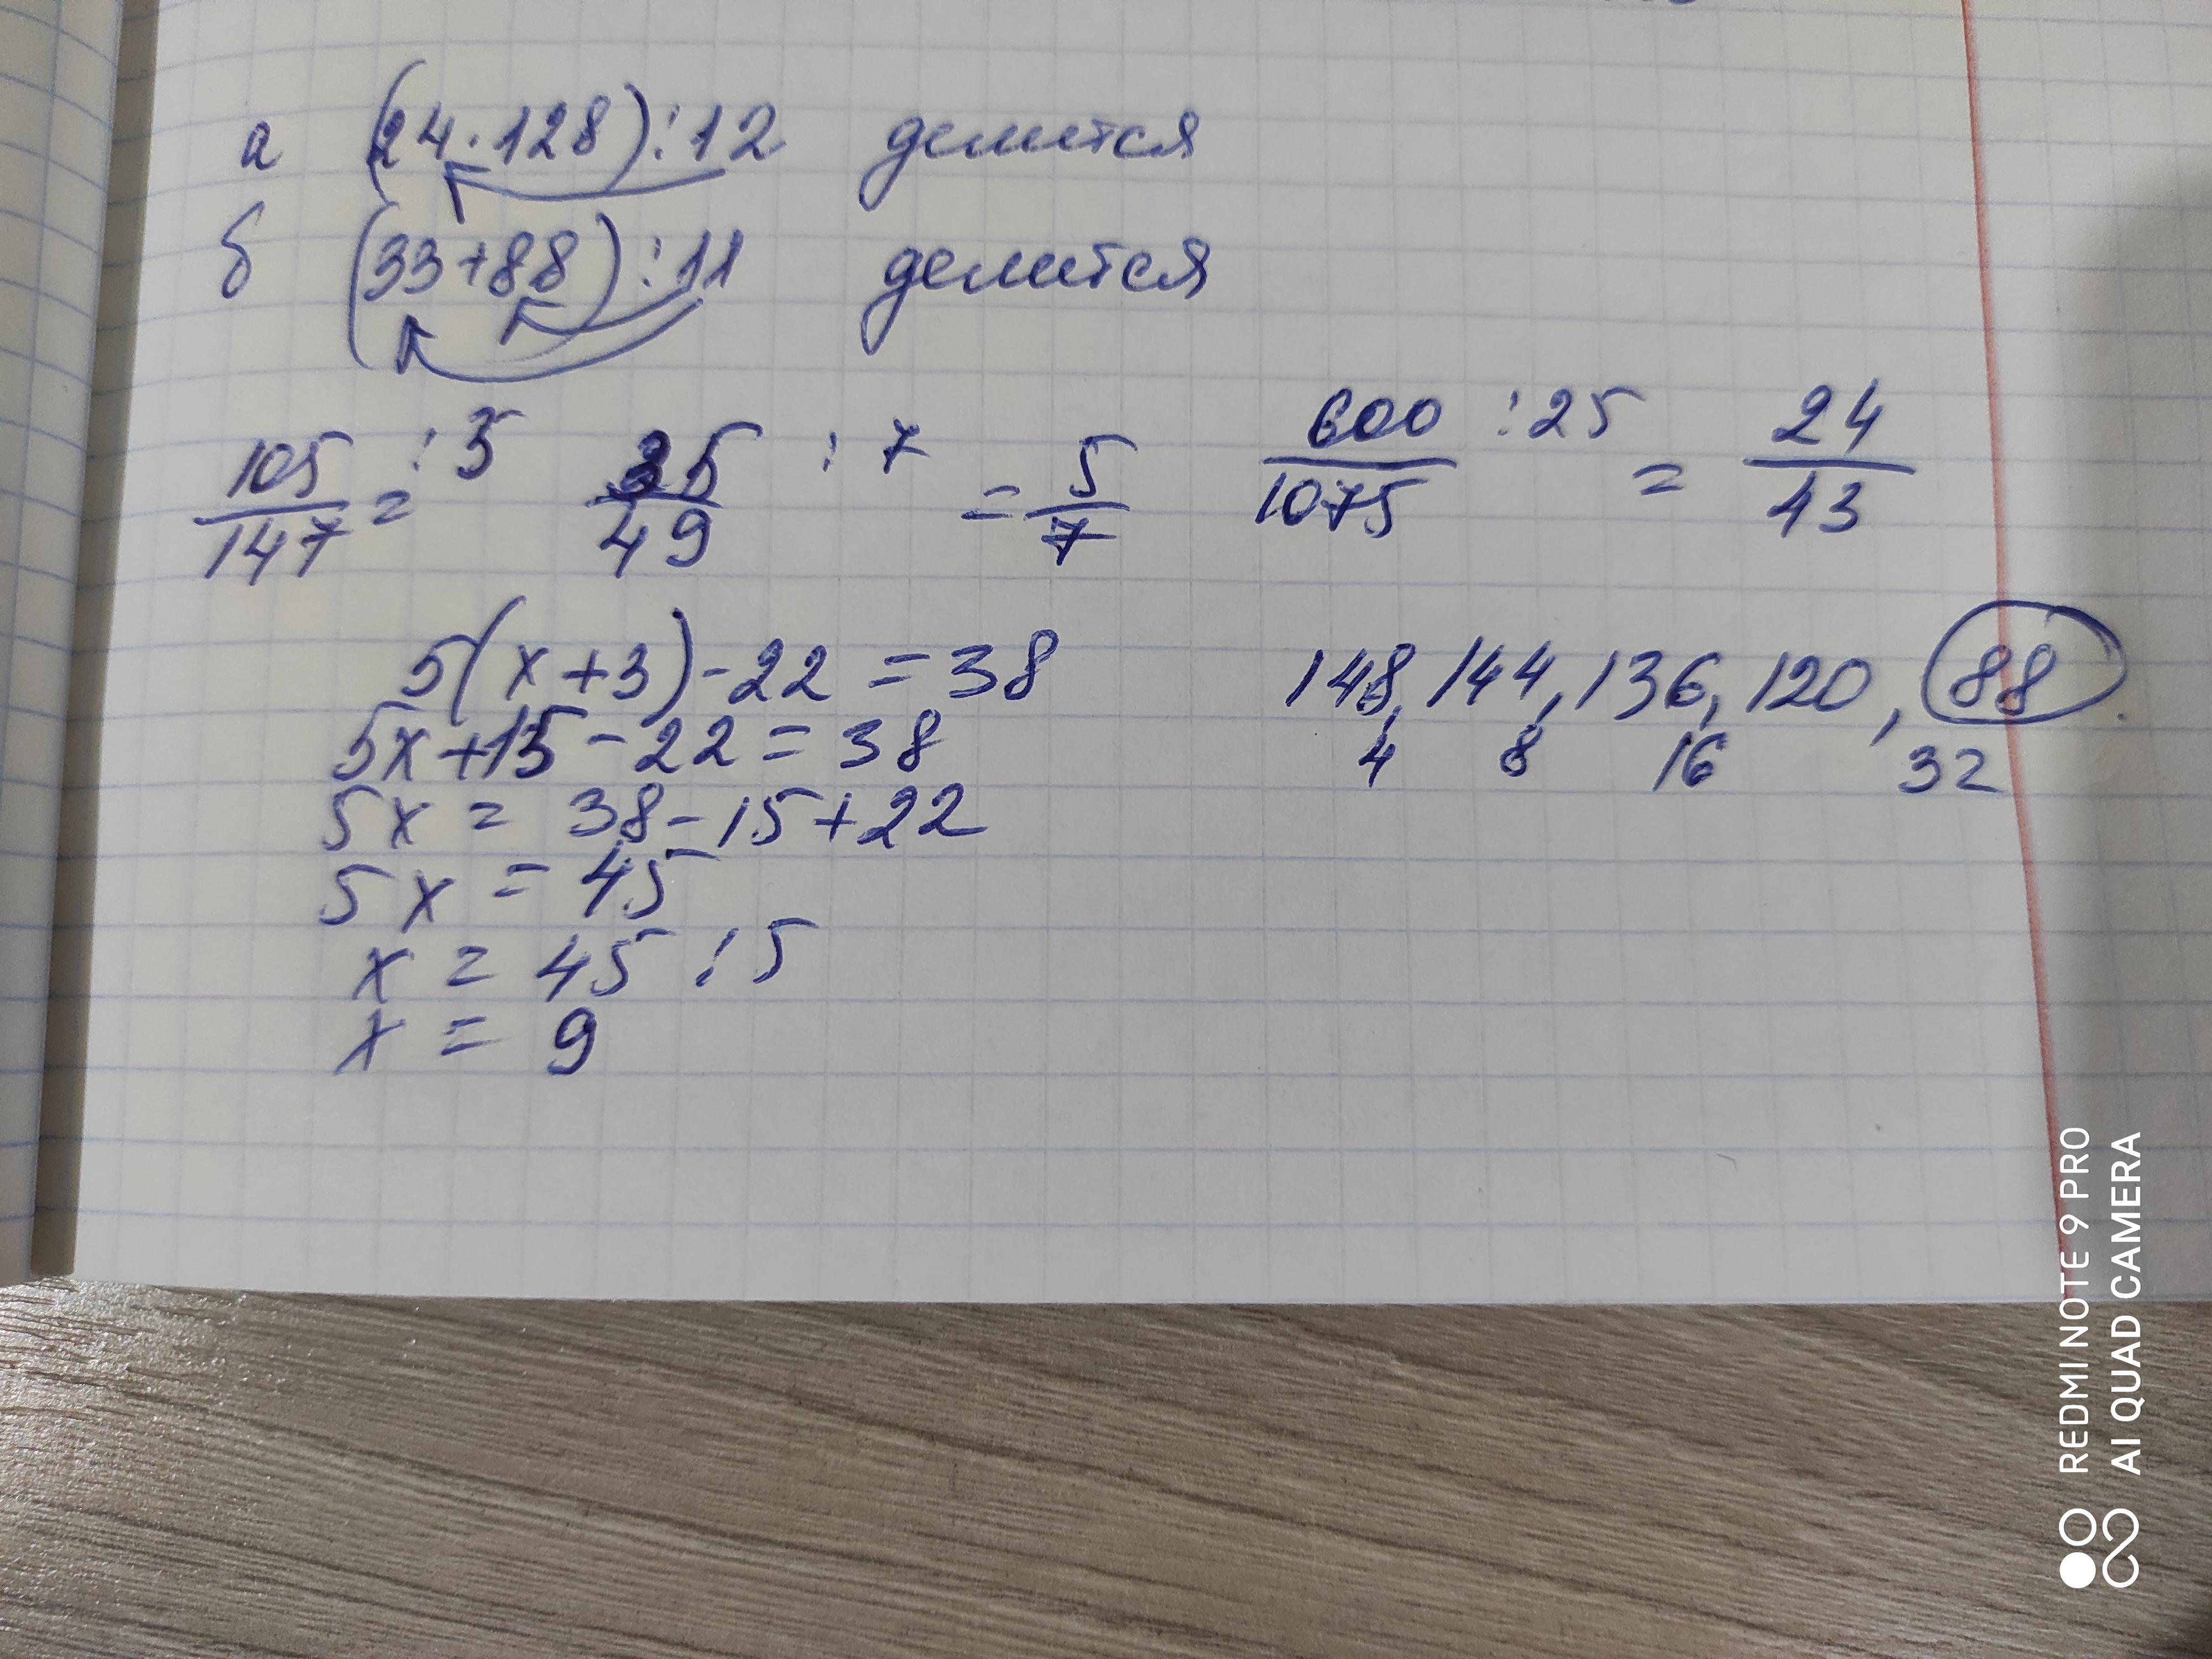 а (24·128):12 делится
б (33+88):11 делится
105/147 = :3 35/49 :7 = 5/7 600/1075 :25 = 24/43
5(x+3)-22=38 148, 144, 136, 120, 88
5x+15-22=38 4 8 16 32
5x = 38-15+22
5x = 45
x = 45:5
x = 9
REDMI NOTE 9 PRO
AI QUAD CAMERA